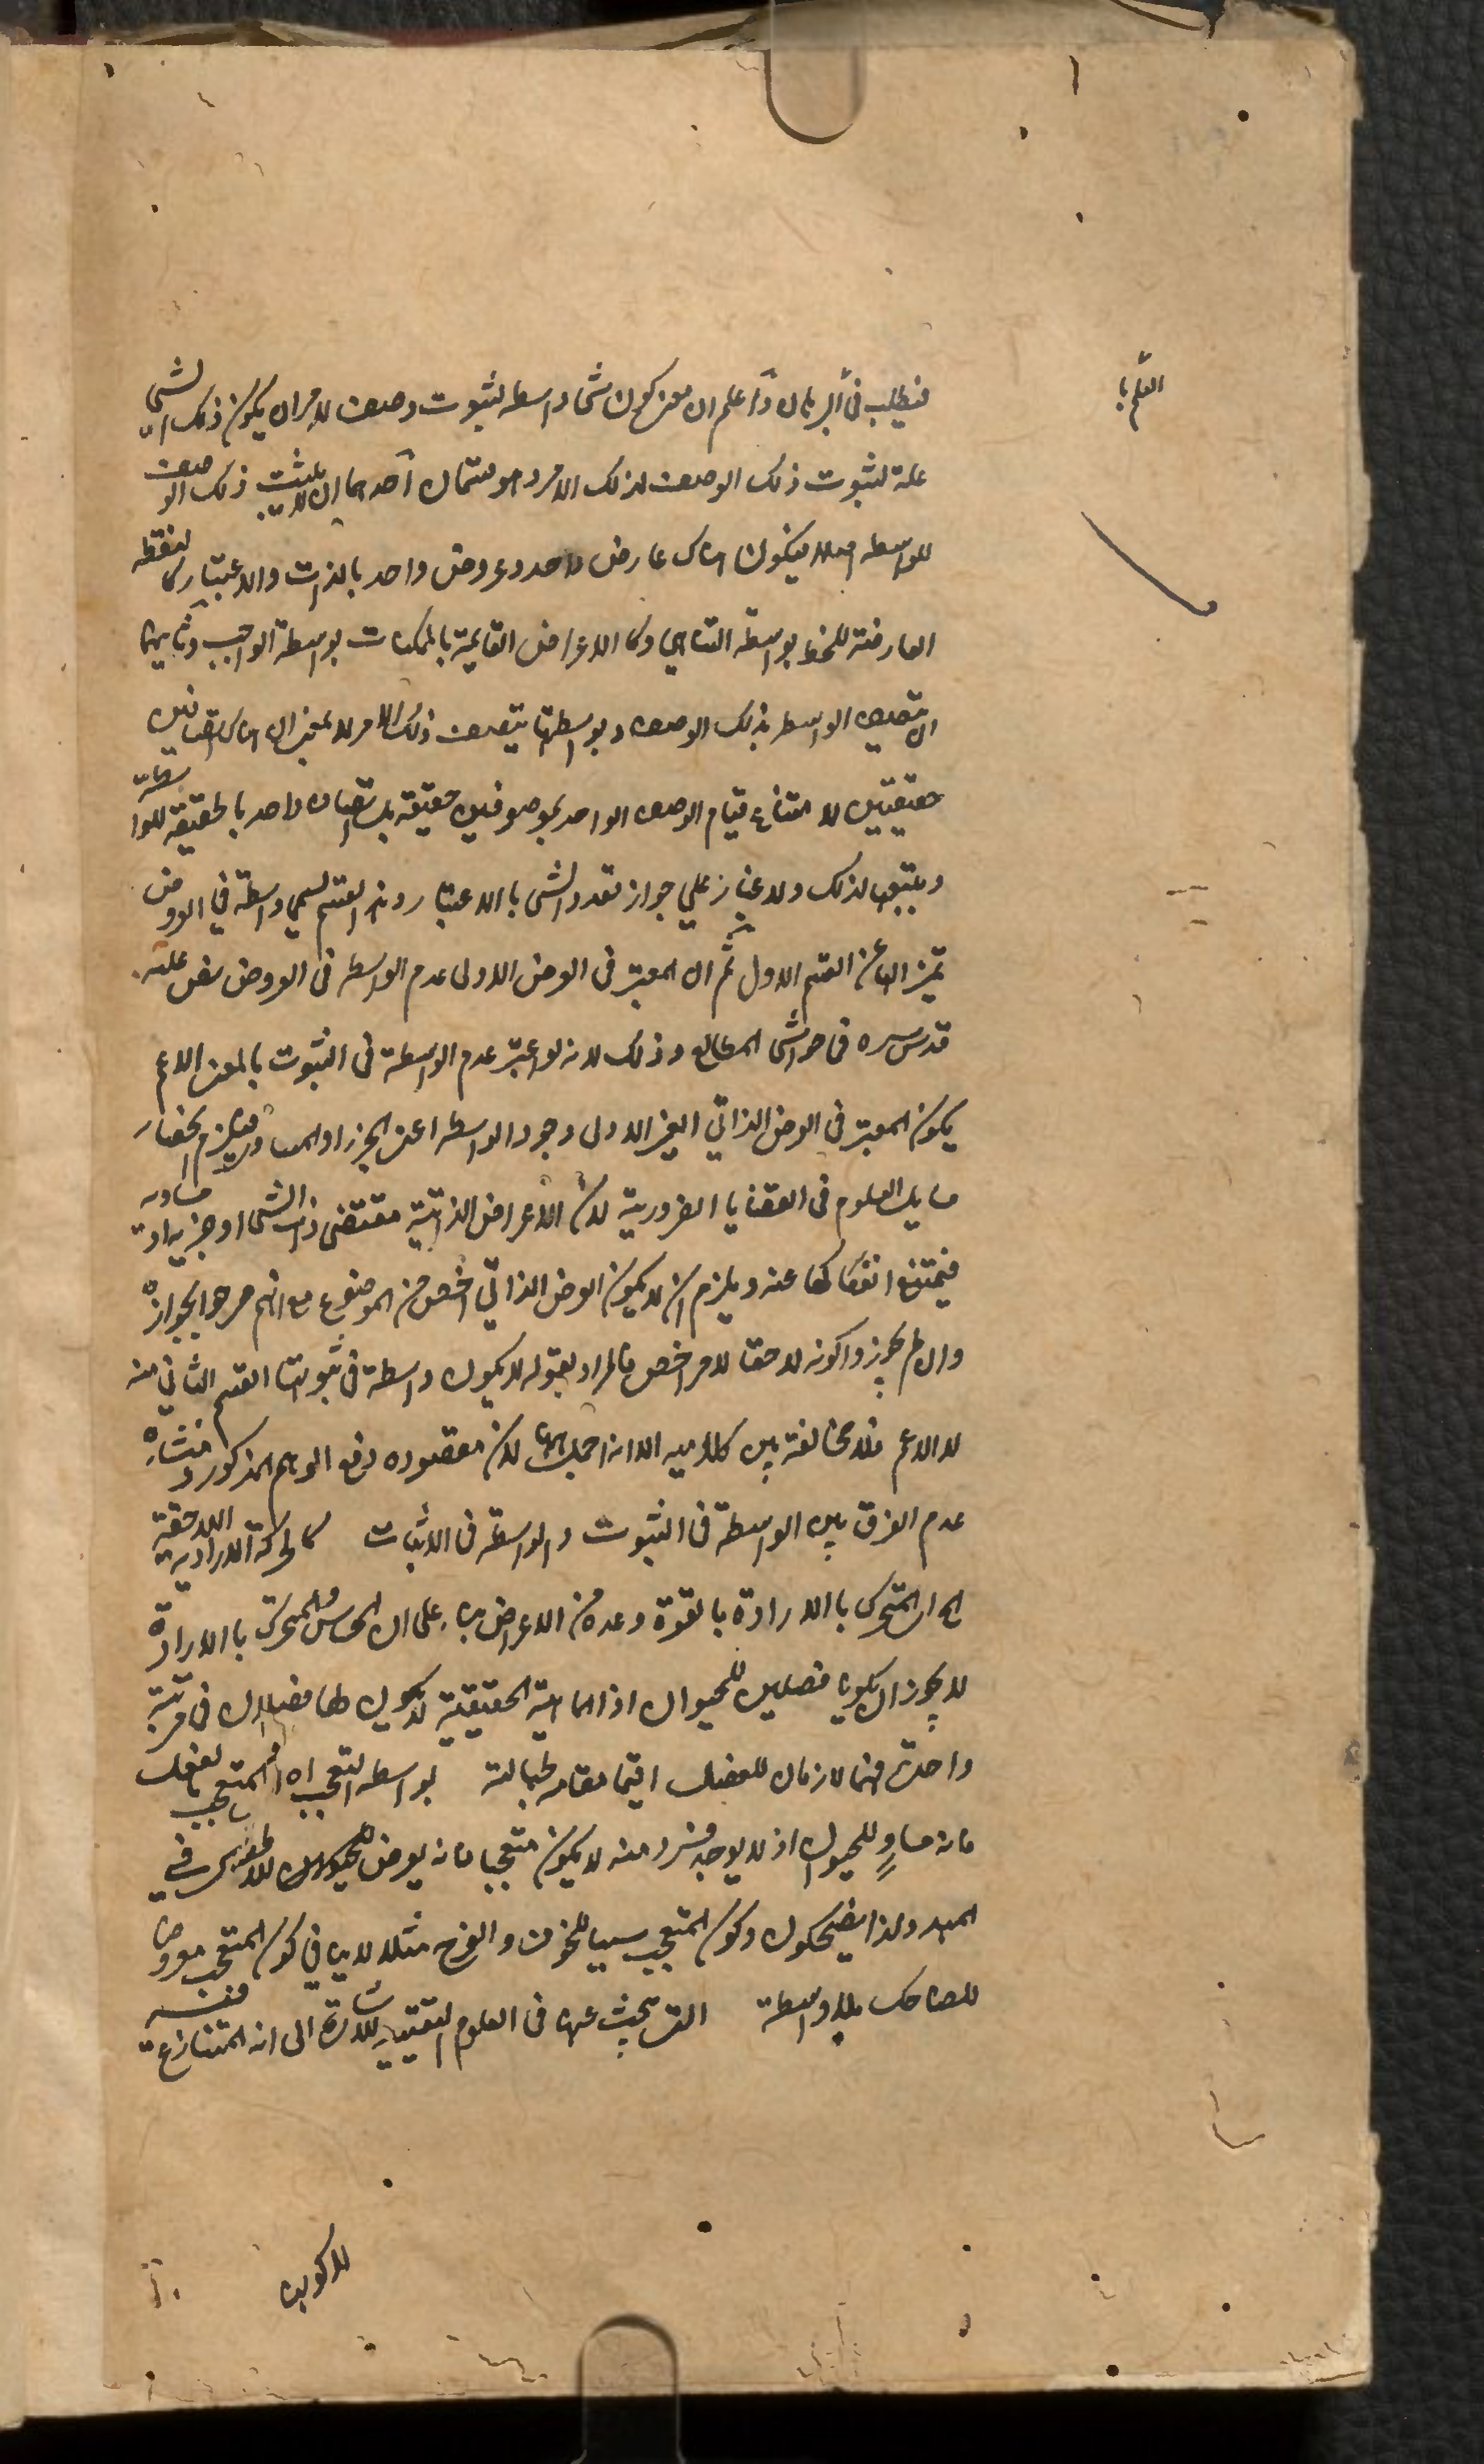 العلم با
فيطلب في البرهان واعلم ان معنى كون شئ واسطة لثبوت وصف لامر ان يكون ذلك الشئ
علة لثبوت ذلك الوصف لذلك الامر وهو قسمان احدهما ان لا يثبت ذلك الوصف
للواسطة اصلا فيكون هناك عارض واحد وعروض واحد بالذات والاعتبار كالنقطة
العارضة للخط بواسطة التناهي وكالاعراض القايمة بالممكنات بواسطة الواجب وثانيهما
ان يتصف الواسطة بذلك الوصف وبواسطتها يتصف ذلك الامر لا بمعنى ان هناك اتصافين
حقيقيين لامتناع قيام الوصف الواحد بموصوفين حقيقة بل اتصاف واحد بالحقيقة للواسطة
وبتبعها لذلك ولا غبار على جواز تعدد الشئ بالاعتبار وهذا القسم يسمى واسطة في العروض
تميزا لها عن القسم الاول ثم ان المعتبر في العرض الاولى عدم الواسطة في العروض نص عليه
قدس سره في حواشى المطالع وذلك لانه لو اعتبر عدم الواسطة في الثبوت بالمعنى الاعم
يكون المعتبر في العرض الذاتي الغير الاولى وجود الواسطة اعنى الجزء او المساوى فيلزم انحصار
مسايل العلوم في القضايا الضرورية لان الاعراض الذاتية مقتضى ذات الشئ او جزيه او مساويه
فيمتنع انفكاكها عنه ويلزم ان لا يكون العرض الذاتي اخص من الموضوع مع انهم صرحوا بجوازه
وان لم يجوزوا كونه لاحقا لامر اخص فالمراد بقوله لا يكون واسطة في ثبوتها القسم الثاني منه
لا الاعم فلا مخالفة بين كلاميه الا انه اجمل ههنا لان مقصوده دفع الوهم المذكور ومنشاؤه
عدم الفرق بين الواسطة في الثبوت والواسطة في الاثبات كالحركة الارادية اللاحقة
اى المتحرك بالارادة بالقوة وعده من الاعراض بناء على ان الحساس والمتحرك بالارادة
لا يجوز ان يكونا فصلين للحيوان اذ الماهية الحقيقية لا يكون لها فصلان في مرتبة
واحدة فهما لازمان للفصل اقيما مقامه لجهالته بواسطة التعجب اى المتعجب بالفعل
فانه مساو للحيوان اذ لا يوجد فرد منه لا يكون متعجبا فانه يعرض للاطفال في
المهد ولذا يضحكون وكون المتعجب سببا للخوف والفرح مثلا لا ينافي كون المتعجب معروضا
للضاحك بلا واسطة التى يبحث عنها في العلوم اليقينية للاشارة الى انه المتنازع فيه
للاكوان